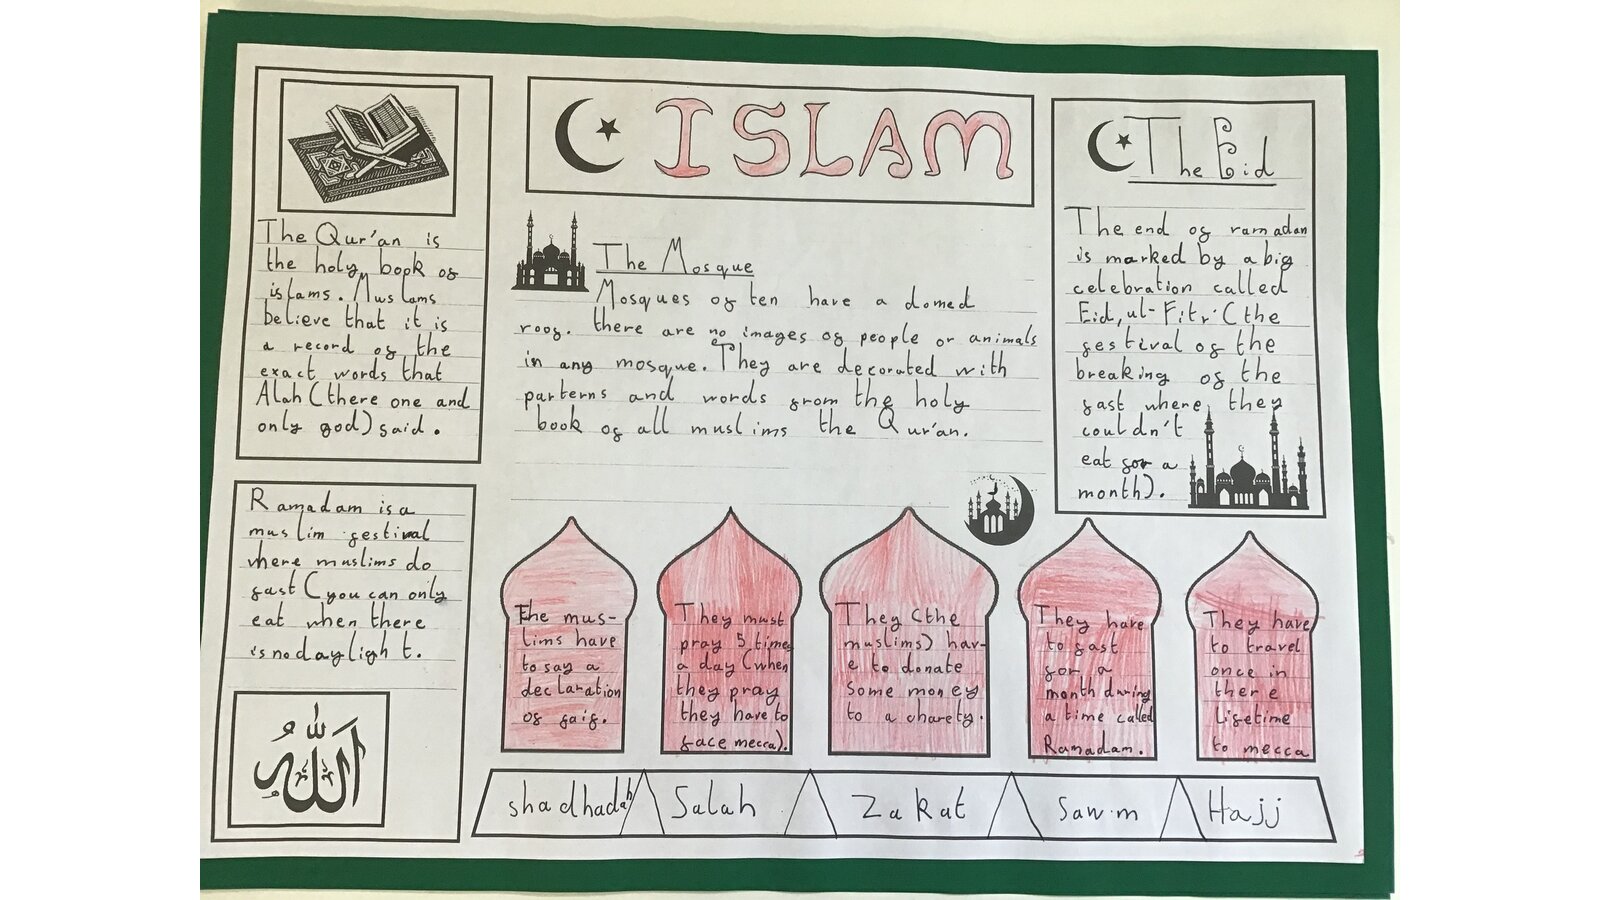 ISLAM
The Qur'an is
the holy book of
islams. Muslams
believe that it is
a record of the
exact words that
Alah (there one and
only god) said.
Ramadam is a
muslim festival
where muslims do
fast (you can only
eat when there
is no daylight.
الله
The Mosque
Mosques often have a domed
roof. there are no images of people or animals
in any mosque. They are decorated with
parterns and words from the holy
book of all muslims the Qur'an.
The Eid
The end of ramadan
is marked by a big
celebration called
Eid, ul-Fitr (the
festival of the
breaking of the
fast where they
couldn't
eat for a
month).
The mus-
lims have
to say a
declaration
of faif.
They must
pray 5 times
a day (when
they pray
they have to
face mecca).
They (the
muslims) hav-
e to donate
some money
to a charety.
They have
to fast
for a
month during
a time called
Ramadam.
They have
to travel
once in
there
lifetime
to mecca
shadhadah
Salah
Zakat
Sawm
Hajj